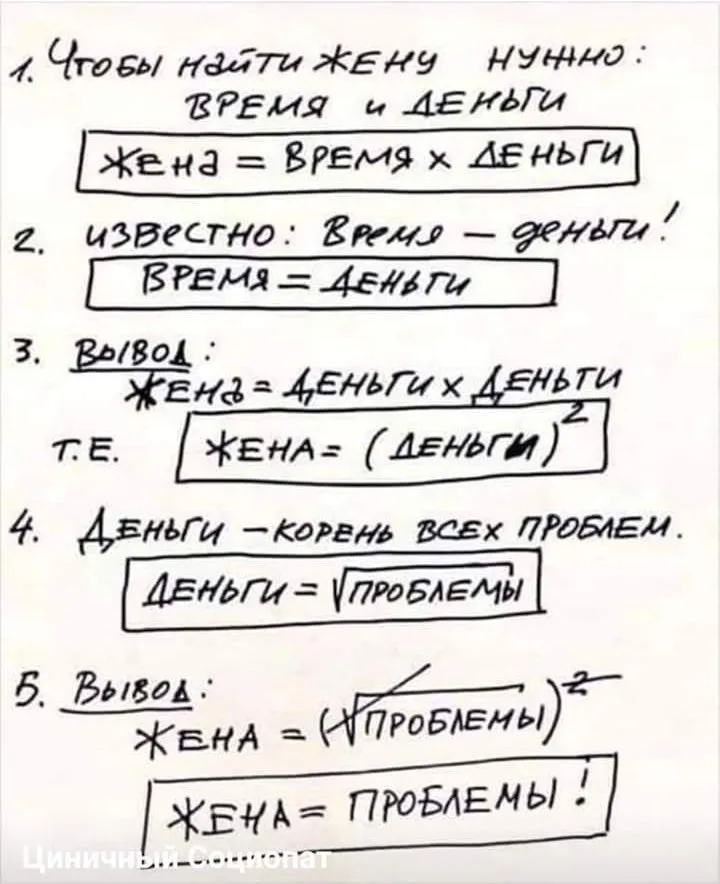 1. Чтобы найти жену нужно:
время и деньги
жена = время x деньги
2. известно: время – деньги!
время = деньги
3. Вывод:
жена = деньги x деньги
т.е. жена = (деньги)²
4. Деньги – корень всех проблем.
деньги = √проблемы
5. Вывод:
жена = (√проблемы)²
жена = проблемы!
Циничный Социопат